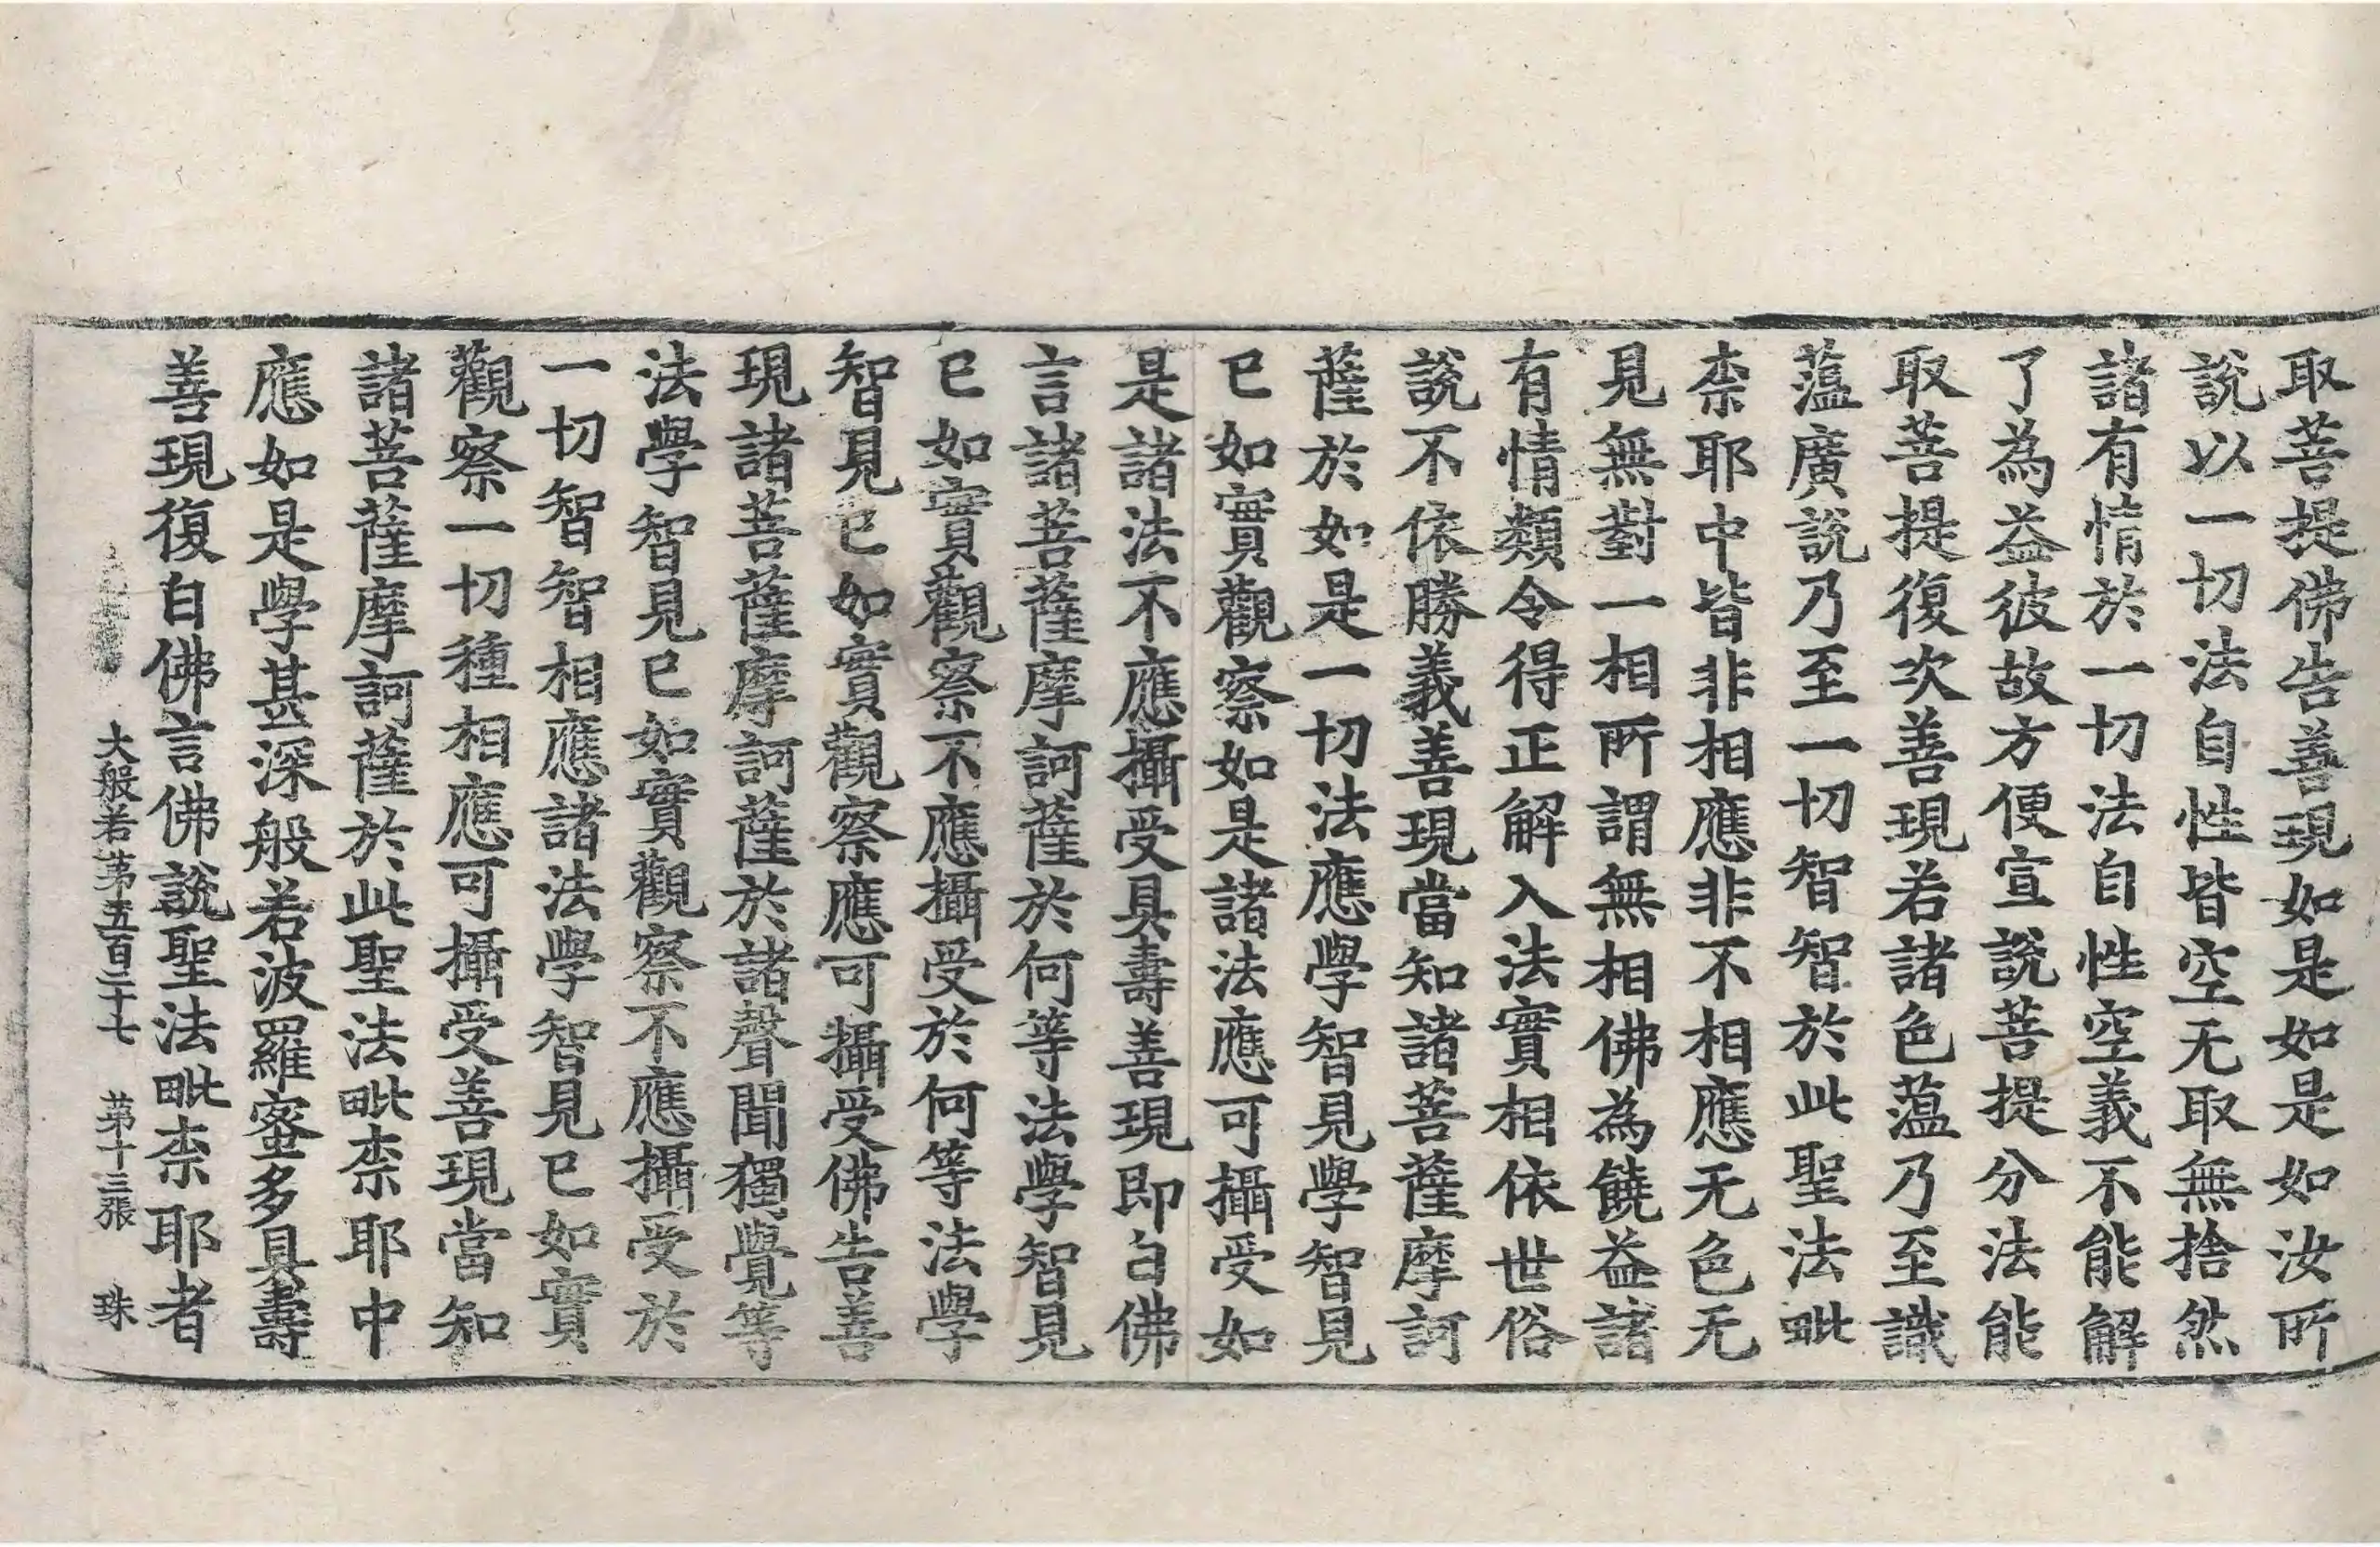 取菩提佛告善現如是如是如汝所
說以一切法自性皆空无取無捨然
諸有情於一切法自性空義不能解
了為益彼故方便宣說菩提分法能
取菩提復次善現若諸色蕰乃至識
蕰廣說乃至一切智智於此聖法毗
柰耶中皆非相應非不相應无色无
見無對一相所謂無相佛為饒益諸
有情類令得正解入法實相依世俗
說不依勝義善現當知諸菩薩摩訶
薩於如是一切法應學智見學智見
已如實觀察如是諸法應可攝受如
是諸法不應攝受具壽善現即白佛
言諸菩薩摩訶薩於何等法學智見
已如實觀察不應攝受於何等法學
智見已如實觀察應可攝受佛告善
現諸菩薩摩訶薩於諸聲聞獨覺等
法學智見已如實觀察不應攝受於
一切智智相應諸法學智見已如實
觀察一切種相應可攝受善現當知
諸菩薩摩訶薩於此聖法毗柰耶中
應如是學甚深般若波羅蜜多具壽
善現復白佛言佛說聖法毗柰耶者
大般若第五百二十七 第十三張 珠